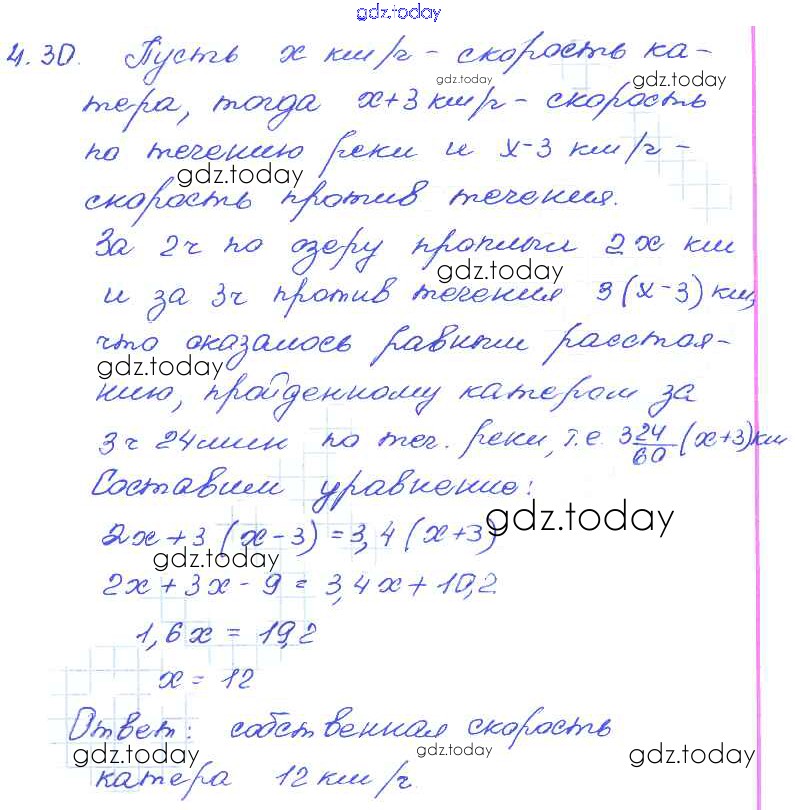 gdz.today
4.30. Пусть x км/ч - скорость ка-
gdz.today gdz.today
тера, тогда x+3 км/ч - скорость
по течению реки и x-3 км/ч -
gdz.today
скорость против течения.
За 2ч по озеру проплыл 2x км
gdz.today
и за 3ч против течения 3(x-3) км,
что оказалось равным расстоя-
gdz.today
нию, пройденному катером за
3ч 24мин по теч. реки, т.е. 3 24/60 (x+3) км
Составим уравнение:
gdz.today
2x+3(x-3)=3,4(x+3)
gdz.today
2x+3x-9=3,4x+10,2
1,6x=19,2
x=12
Ответ: собственная скорость
gdz.today gdz.today gdz.today
катера 12 км/ч.